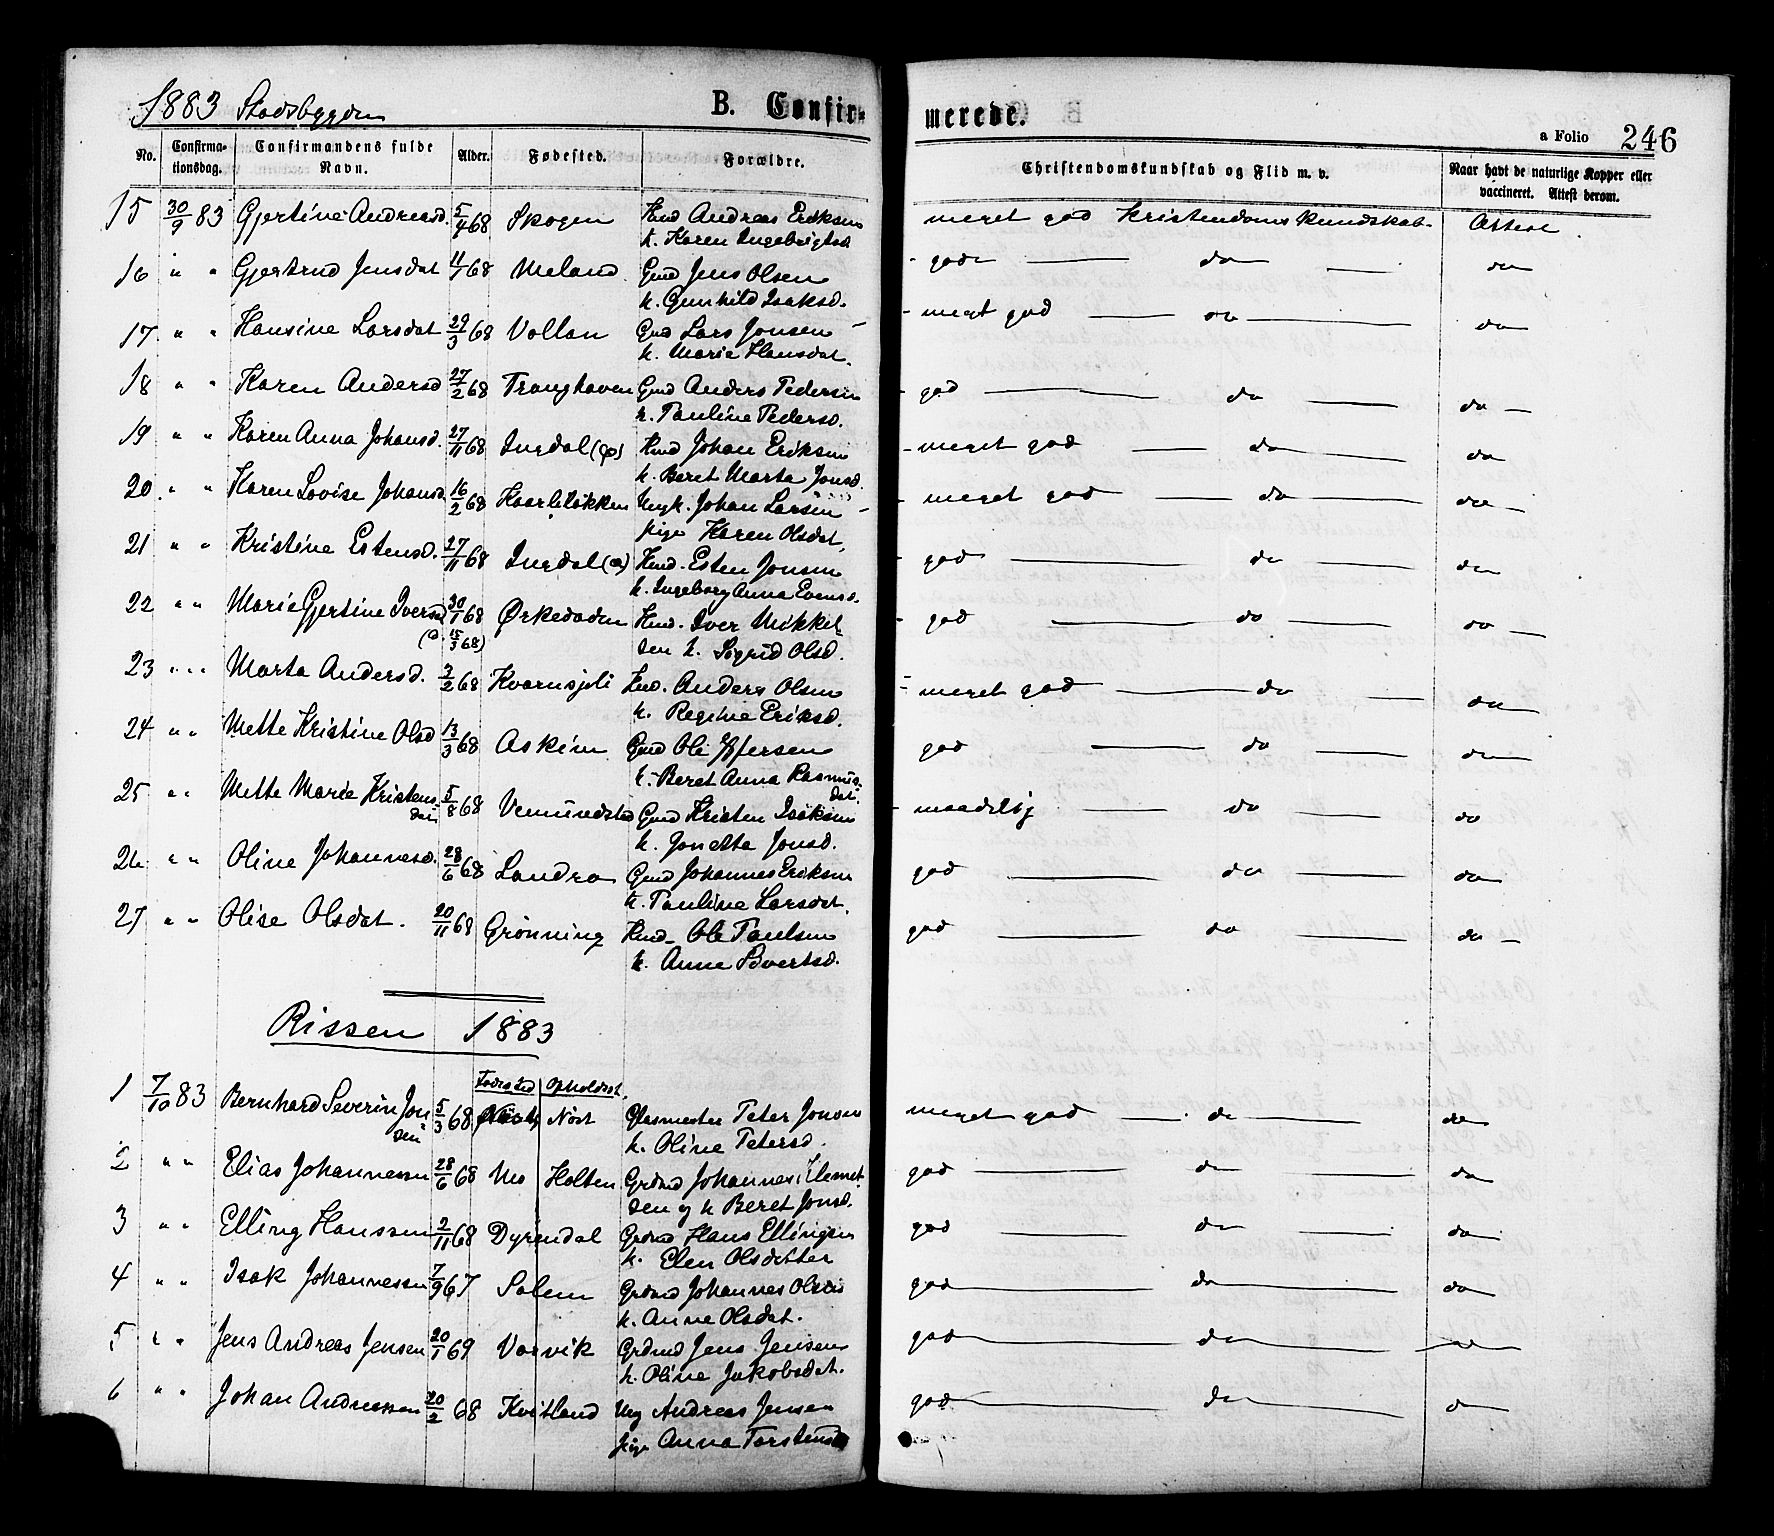 1883 Stadsbygden B. Confir-
merede.
a Folio 246
No. Confirma-tionsdag. Confirmandens fulde Navn. Alder. Fødested. Forældre. Christendomskundskab og Flid m. v. Naar havt de naturlige Kopper eller vaccineret. Attest derom.
15 30/9 83 Gjertine Andreasd. 5/4 68 Skogen Kmd Andreas Eriksen meget god Kristendomskundskab Attest.
k. Karen Ingebrigtsd.
16 " " Gjertrud Jensdat 11/1 68 Meland Gmd Jens Olsen god do do
k. Gunhild Isaksd.
17 " " Hansine Larsdat 29/3 68 Vollan Gmd Lars Jonsen meget god do do
k. Marie Hansdat.
18 " " Karen Andersd 27/2 68 Tranghaven Gmd Anders Pedersen god do do
k. Pauline Pedersd.
19 " " Karen Anna Johansd. 27/11 68 Ingdal Kmd Johan Eriksen meget god do do
k. Beret Marta Jonsd.
20 " " Karen Lovise Johansd 16/2 68 Haarleløkken Ungk. Johan Larsen meget god do do
pige Karen Olsdat.
21 " " Kristine Estensd. 27/11 68 Ingdal Kmd. Esten Jonsen god do do
k. Ingeborg Anna Evensd.
22 " " Marie Gjertine Iversd 30/1 68 Ørkedaden Kmd. Iver Mikkel- god do do
(d. 15/3 68) sen k. Sigrid Olsd.
23 " " Marta Andersd. 2/2 68 Kvarnsjeli Kmd. Anders Olsen meget god do do
k. Regine Eriksd.
24 " " Mette Kristine Olsd 13/3 68 Askim Gmd Ole Effersen god do do
k. Beret Anna Rasmus-
dat.
25 " " Mette Marie Kristens- 5/8 68 Vemundstad Gmd Kristen Isaksen maadelig do do
dat k. Jonetta Jonsd.
26 " " Oline Johannesd. 28/6 68 Landro Gmd Johannes Eriksen god do do
k. Pauline Larsdat.
27 " " Olise Olsdat. 20/11 68 Grønning Kmd. Ole Paulsen god do do
k. Anne Sivertsd.
Rissen 1883
Fødested Opholdsst.
1 7/10 83 Bernhard Severin Jon 5/3 68 Nøst Glasmester Peter Jonsen meget god do do
sen k. Oline Petersd.
2 " " Elias Johannessen 28/6 68 Mo Holten Grdmd Johannes Klemet- god do do
sen og k Beret Jonsd.
3 " " Elling Hanssen 2/11 68 Dyrendal Grdmd Hans Ellingsen god do do
k. Elen Olsdatter
4 " " Isak Johannessen 7/9 67 Salem Grdmd Johannes Olsen god do do
k. Anne Olsdat.
5 " " Jens Andreas Jensen 20/1 69 Vorvik Grdmd Jens Jensen god do do
k. Oline Jakobsdat.
6 " " Johan Andreassen 20/2 68 Kvitland Ung Andreas Jensen god do do
pige Anna Torstensd